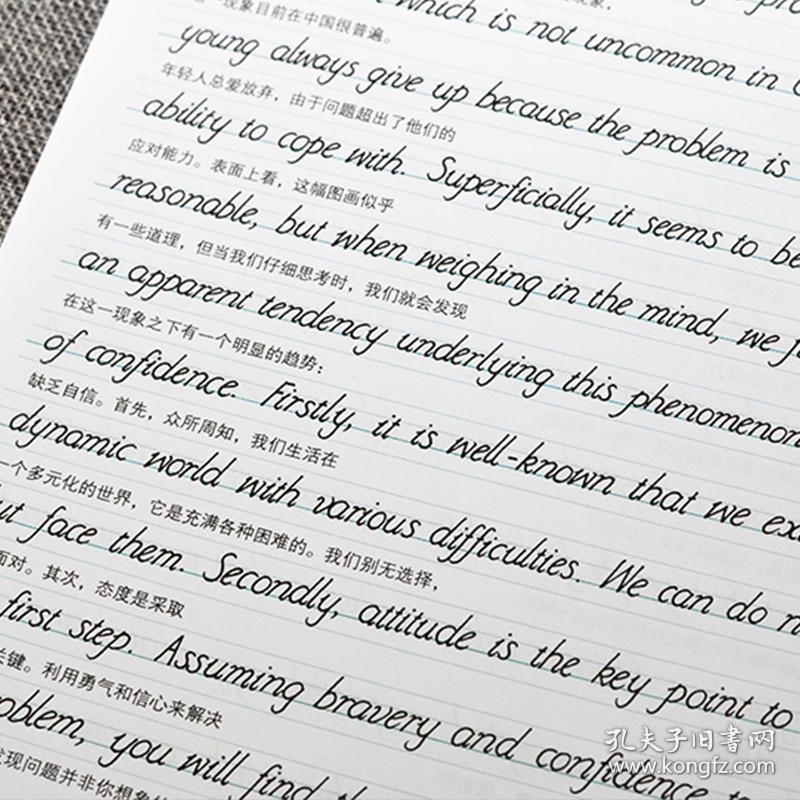 现象目前在中国很普遍。
which is not uncommon in
young always give up because the problem is
年轻人总爱放弃，由于问题超出了他们的
ability to cope with. Superficially, it seems to be
应对能力。表面上看，这幅图画似乎
reasonable, but when weighing in the mind, we
有一些道理，但当我们仔细思考时，我们就会发现
an apparent tendency underlying this phenomenon
在这一现象之下有一个明显的趋势：
of confidence. Firstly, it is well-known that we
缺乏自信。首先，众所周知，我们生活在
dynamic world with various difficulties. We can do
一个多元化的世界，它是充满各种困难的。我们别无选择，
face them. Secondly, attitude is the key point to
面对。其次，态度是采取
first step. Assuming bravery and confidence
关键。利用勇气和信心来解决
you will find
发现问题并非你想象
孔夫子旧书网
www.kongfz.com